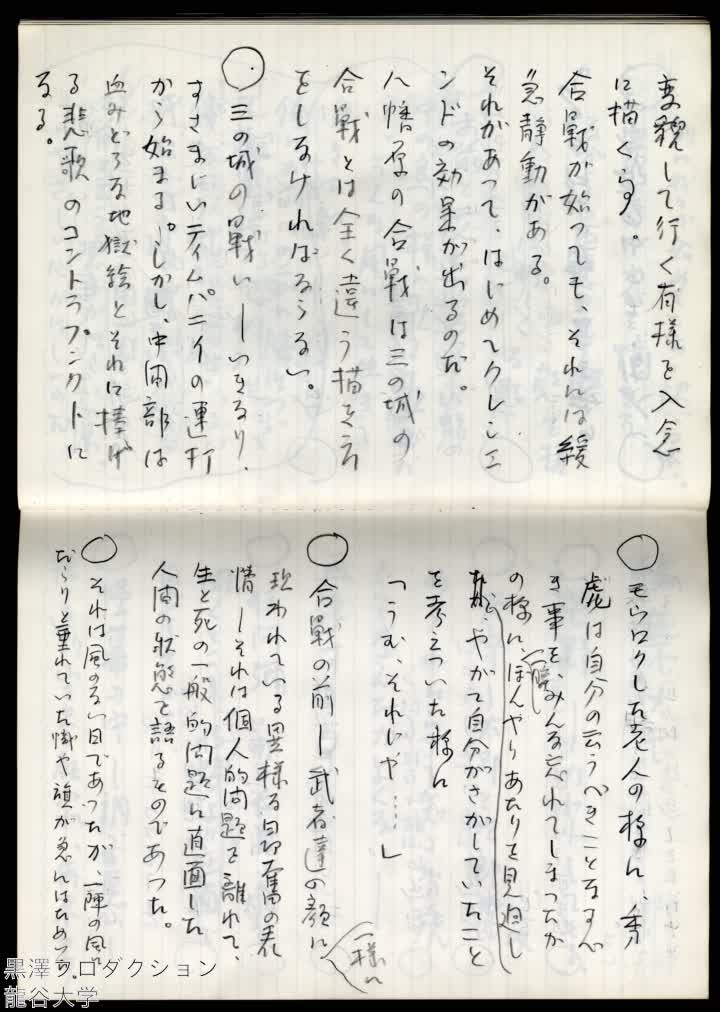 変貌して行く有様を入念
に描くらす。
合戰が始っても、それには緩
急静動がある。
それがあって、はじめてクレシェ
ンドの効果が出るのだ。
八幡原の合戰は三の城の
合戰とは全く違う描き方
をしなければならない。
○三の城の戰い ー いきなり、
すさまじいティムパニイの連打
から始まる。しかし、中間部は
血みどろな地獄絵とそれに捧げ
る悲歌のコントラプンクトに
なる。
○モウロクした老人の様に、秀
虎は自分の云うべきことなすべ
き事を、みんな忘れてしまったか
の様に、一瞬ぼんやりあたりを見廻し
たが、やがて自分がさがしていたこと
を考えついた様に
「うむ、それじゃ…」
○合戰の前ー武者達の顔に
一様に
現われている異様な昂奮の表
情ーそれは個人的問題を離れて、
生と死の一般的問題に直面した
人間の状態を語るものであった。
○それは風のない日であったが、一陣の風に
だらりと垂れていた幟や旗が急にはためつ。
黒澤プロダクション
龍谷大学